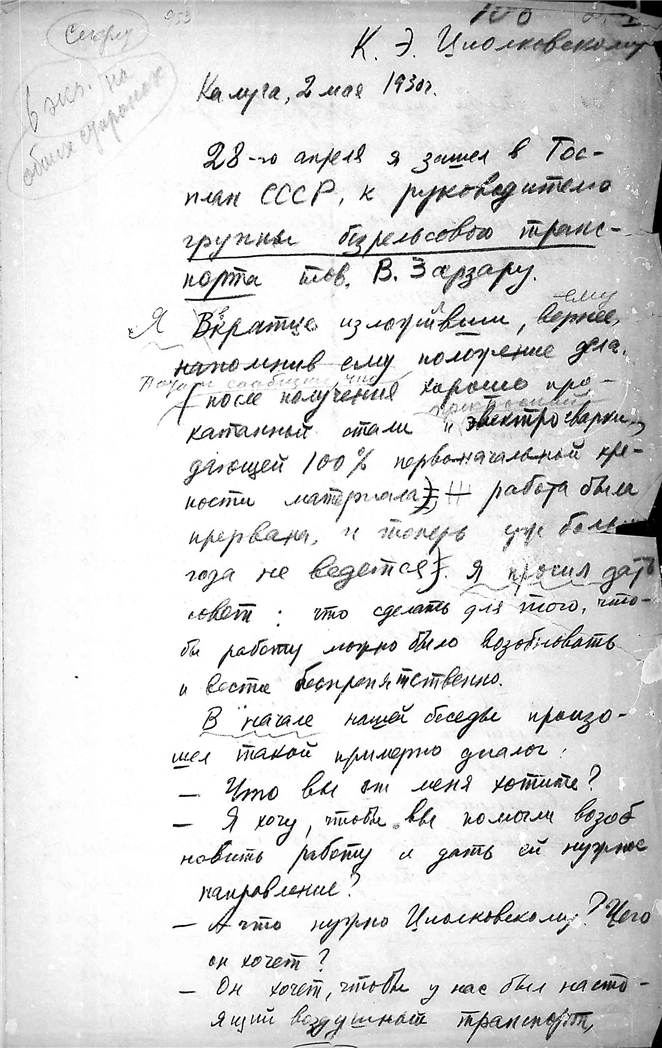 953
6 экз. на
обеих сторонах
К. Э. Циолковскому
Калуга, 2 мая 1930 г.
28-го апреля я зашел в Гос-
план СССР, к руководителю
группы безрельсового транс-
порта тов. В. Зарзару.
Я Вкратце изложивши, вернее, ему
напомнив ему положение дела.
Потом сообщив, что
(после получения хорошо про-
катанной стали и электросварки,
дающей 100% первоначальной кре-
пости материала), работа была
прервана, и теперь уже больше
года не ведется). Я просил дать
совет: что сделать для того, что-
бы работу можно было возобновить
и вести беспрепятственно.
В начале нашей беседы произо-
шел такой примерно диалог:
— Что вы от меня хотите?
— Я хочу, чтобы вы помогли возоб
новить работу и дать ей нужное
направление?
— А что нужно Циолковскому? Чего
он хочет?
— Он хочет, чтобы у нас был насто-
ящий воздушный транспорт,